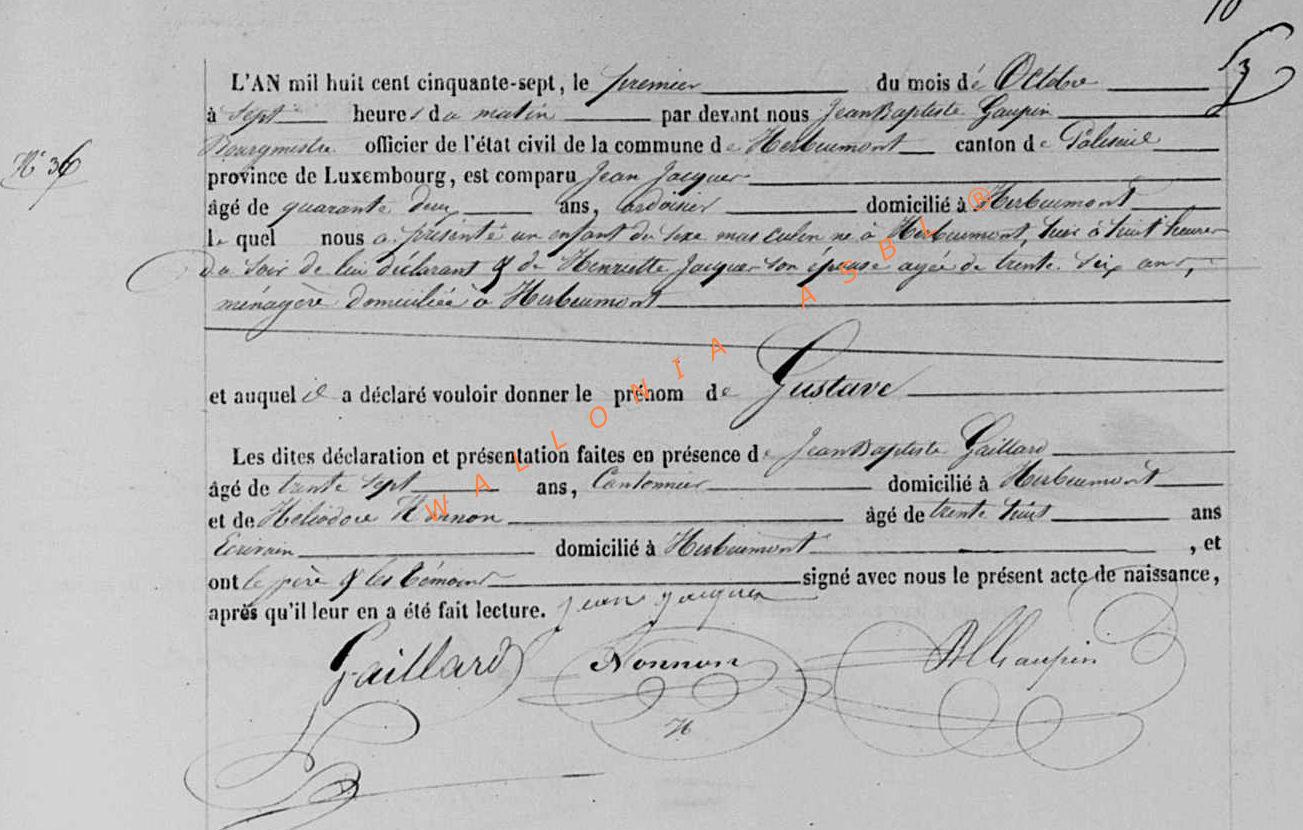 10
3
L'AN mil huit cent cinquante-sept, le premier du mois de Octobre
à sept heures du matin par devant nous Jean Baptiste Gaupin
Bourgmestre officier de l'état civil de la commune de Herbeumont canton de Paliseul
N° 36
province de Luxembourg, est comparu Jean Jacques
âgé de quarante deux ans, ardoisier domicilié à Herbeumont
le quel nous a présenté un enfant du sexe masculin né à Herbeumont, hier à huit heures
du soir de lui déclarant & de Henriette Jacques son épouse agée de trente six ans,
ménagère domiciliée à Herbeumont
et auquel il a déclaré vouloir donner le prénom de Gustave
Les dites déclaration et présentation faites en présence de Jean Baptiste Gaillard
âgé de trente sept ans, Cantonnier domicilié à Herbeumont
et de Héliodore Nonnon âgé de trente huit ans
Ecrivain domicilié à Herbeumont , et
ont le père & les témoins signé avec nous le présent acte de naissance,
après qu'il leur en a été fait lecture. Jean Jacques
Gaillard Nonnon Gaupin
H
WALLONIA ASBL ®